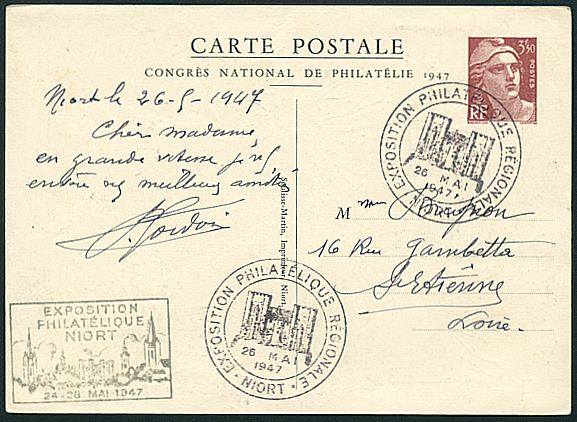 CARTE POSTALE
CONGRÈS NATIONAL DE PHILATÉLIE 1947
3F50
POSTES
RF
Niort le 26-5-1947
Chère madame
en grande vitesse je
meilleurs
EXPOSITION PHILATÉLIQUE RÉGIONALE
26 MAI
1947
NIORT
Soulisse-Martin, Imprimeur, Niort
Mme
16 Rue Gambetta
St Etienne
Loire.
EXPOSITION PHILATÉLIQUE RÉGIONALE
26 MAI
1947
NIORT
EXPOSITION
PHILATÉLIQUE
NIORT
24-26 MAI 1947